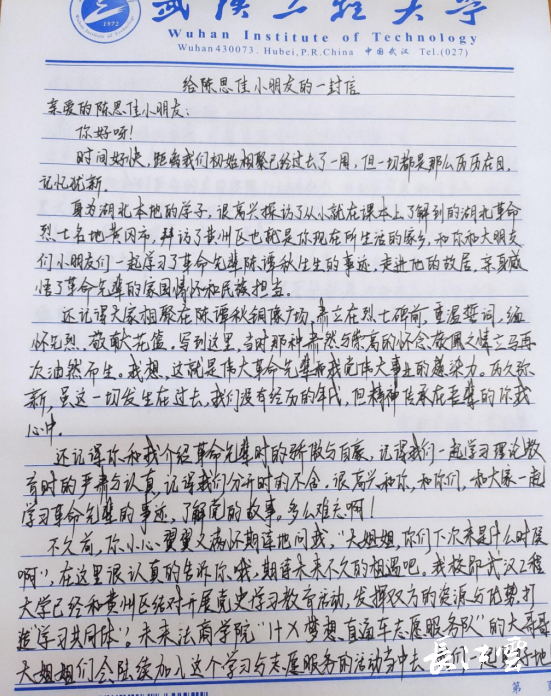 武汉工程大学
Wuhan Institute of Technology
Wuhan430073. Hubei, P.R.China 中国武汉 Tel.(027)
1972
给陈思佳小朋友的一封信
亲爱的陈思佳小朋友:
你好呀!
时间好快,距离我们初始相聚已经过去了一周,但一切都是那么历历在目,
记忆犹新。
身为湖北本地的学子,很高兴探访了从小就在课本上了解到的湖北革命
烈士名地黄冈市,拜访了黄州区也就是你现在所生活的家乡,和你和大朋友
们小朋友们一起学习了革命先辈陈潭秋先生的事迹,走进他的故居,亲身感
悟了革命先辈的家国情怀和民族担当。
还记得大家相聚在陈潭秋铜像广场,肃立在烈士碑前,重温誓词,缅
怀先烈,敬献花篮,写到这里,当时那种肃然与崇高的怀念敬佩之情立马再
次油然而生。我想,这就是伟大革命先辈和我党伟大事业的感染力。历久弥
新,虽这一切发生在过去,我们没有经历的年代,但精神传承在吾辈的你我
心中。
还记得你和我介绍革命先辈时的骄傲与自豪,记得我们一起学习理论教
育时的严肃与认真,记得我们分开时的不舍。很高兴和你,和你们,和大家一起
学习革命先辈的事迹,了解党的故事,多么难忘啊!
不久前,你小心翼翼又满怀期待地问我,“大姐姐,你们下次来是什么时候
啊”,在这里很认真的告诉你哦,期待未来不久的相遇吧。我校即武汉工程
大学已经和黄州区结对开展党史学习教育活动,发挥双方的资源与优势打
造“学习共同体”,未来法商学院“计×梦想直通车志愿服务队”的大哥哥
大姐姐们会陆续加入这个学习与志愿服务的活动当中去,
长江云
第